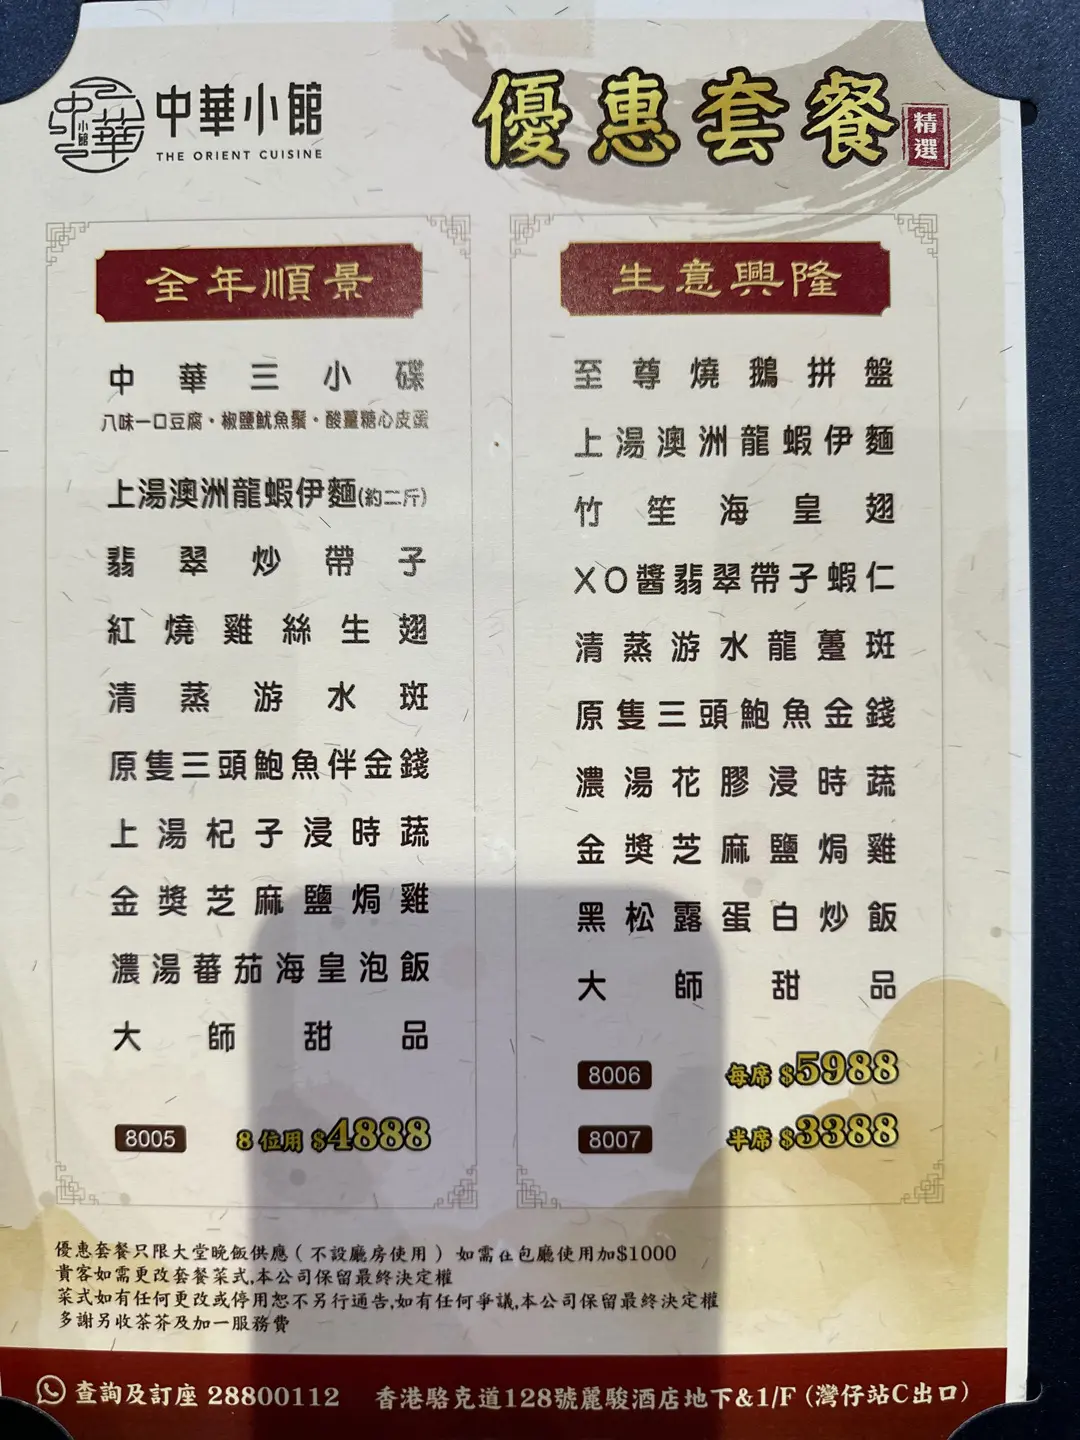 中華小館
THE ORIENT CUISINE
優惠套餐
精選
全年順景
中華三小碟
八味一口豆腐・椒鹽魷魚鬚・酸薑糖心皮蛋
上湯澳洲龍蝦伊麵(約二斤)
翡翠炒帶子
紅燒雞絲生翅
清蒸游水斑
原隻三頭鮑魚伴金錢
上湯杞子浸時蔬
金獎芝麻鹽焗雞
濃湯蕃茄海皇泡飯
大師甜品
8005 8位用 $4888
生意興隆
至尊燒鵝拼盤
上湯澳洲龍蝦伊麵
竹笙海皇翅
XO醬翡翠帶子蝦仁
清蒸游水龍躉斑
原隻三頭鮑魚金錢
濃湯花膠浸時蔬
金獎芝麻鹽焗雞
黑松露蛋白炒飯
大師甜品
8006 每席 $5988
8007 半席 $3388
優惠套餐只限大堂晚飯供應(不設廳房使用) 如需在包廳使用加$1000
貴客如需更改套餐菜式,本公司保留最終決定權
菜式如有任何更改或停用恕不另行通告,如有任何爭議,本公司保留最終決定權
多謝另收茶芥及加一服務費
查詢及訂座 28800112 香港駱克道128號麗駿酒店地下&1/F (灣仔站C出口)